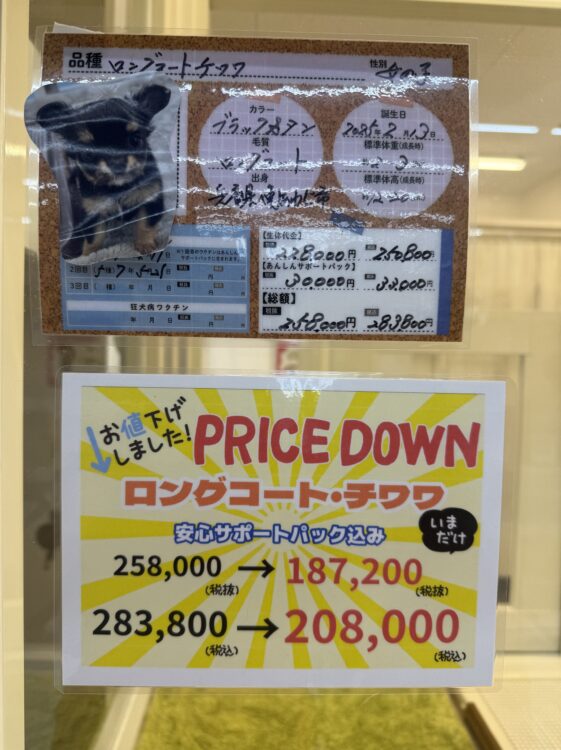 品種 ロングコートチワワ
性別 女の子
カラー
ブラック&タン
毛質
ロングコート
出身
誕生日
標準体重(成長時)
標準体高(成長時)
2回目
3回目 (種) 年 月 日
狂犬病ワクチン
年 月 日
【生体代金】
税抜 228,000円 税込 250,800円
【あんしんサポートパック】
税抜 30,000円 税込 33,000円
【総額】
税抜 258,000円 税込 283,800円
お値下げ
しました!
PRICE DOWN
ロングコート・チワワ
安心サポートパック込み
いま
だけ
258,000(税抜)→187,200(税抜)
283,800(税込)→208,000(税込)